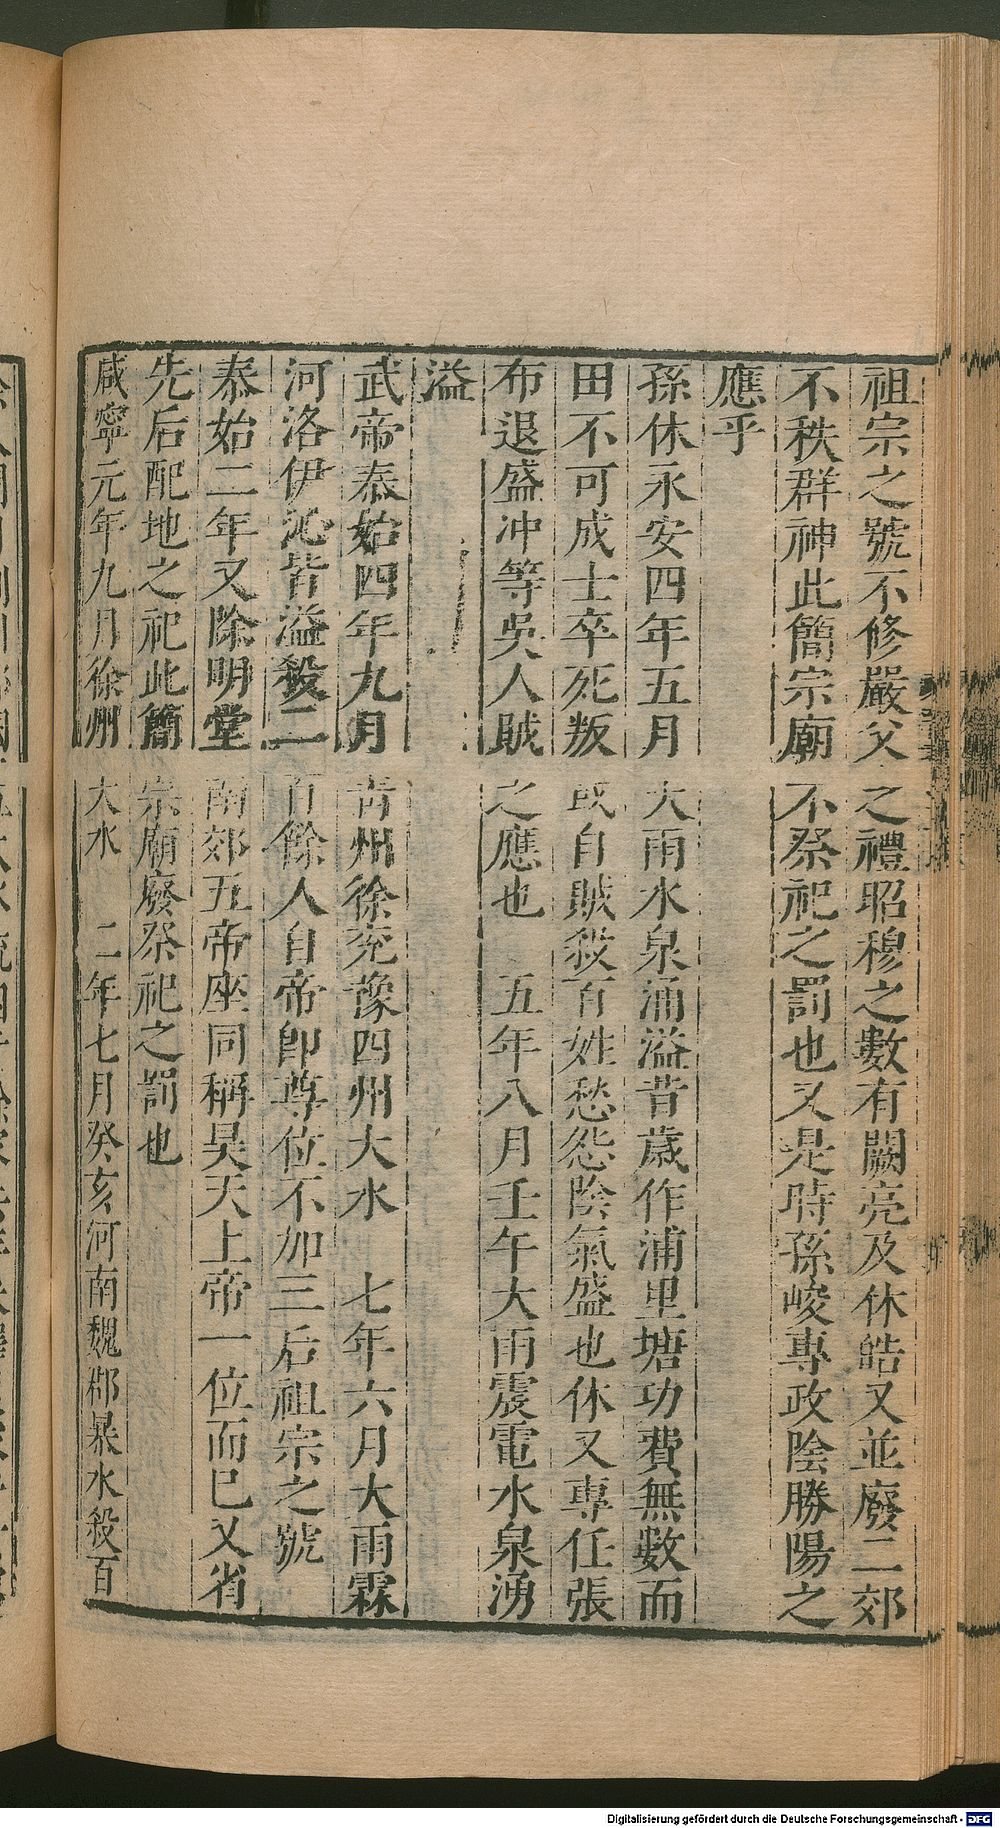 祖宗之號不修嚴父之禮昭穆之數有闕亮及休皓又並廢二郊
不秩群神此簡宗廟不祭祀之罰也又是時孫峻專政陰勝陽之
應乎
孫休永安四年五月大雨水泉涌溢昔歲作浦里塘功費無數而
田不可成士卒死叛或自賊殺百姓愁怨陰氣盛也休又專任張
布退盛冲等吳人賊之應也　五年八月壬午大雨震電水泉湧
溢
武帝泰始四年九月青州徐兖豫四州大水　七年六月大雨霖
河洛伊沁皆溢殺二百餘人自帝即尊位不加三后祖宗之號
泰始二年又除明堂南郊五帝座同稱昊天上帝一位而已又省
先后配地之祀此簡宗廟廢祭祀之罰也
咸寧元年九月徐州大水　二年七月癸亥河南魏郡暴水殺百
Digitalisierung gefördert durch die Deutsche Forschungsgemeinschaft - DFG